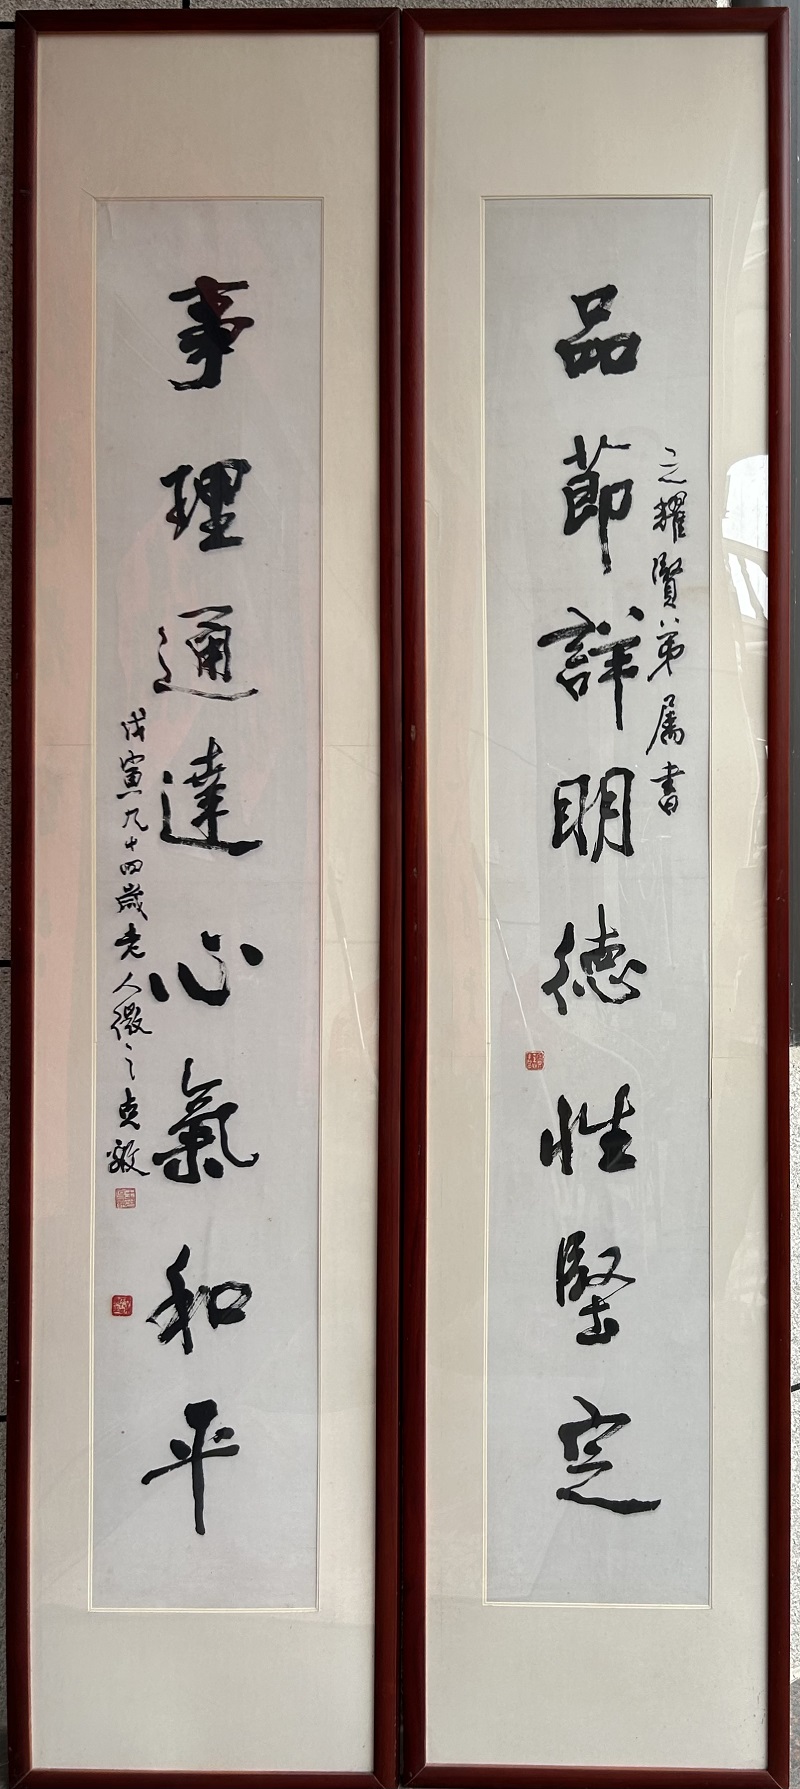 品節詳明德性堅定
之耀賢弟屬書
事理通達心氣和平
戊寅九十四歲老人微之